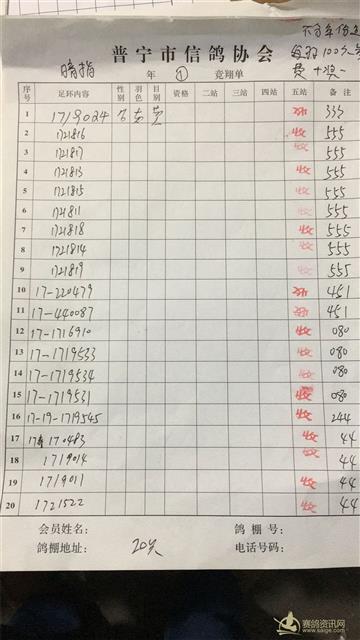 普宁市信鸽协会
暗指 年 ① 竞翔单
序号 足环内容 性别 羽色 目别 资格 一站 三站 四站 五站 备注
1 1719024 333
2 1721816 收 555
3 1721817 收 555
4 1721813 收 555
5 1721815 收 555
6 1721811 收 555
7 1721818 收 555
8 1721814 收 555
9 1721819 收 555
10 17-220479 451
11 17-440087 451
12 17-1716910 收 080
13 17-1719533 收 080
14 17-1719534 收 080
15 17-1719531 收 080
16 17-19-1719545 收 244
17 170483 收 44
18 1719014 收 44
19 1719011 收 44
20 1721522 收 44
会员姓名: 鸽棚号:
鸽棚地址: 20只 电话号码:
赛鸽资讯网
www.saige.com